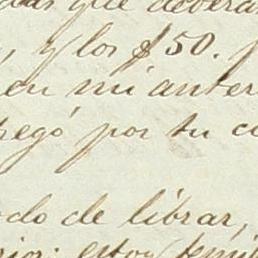 que deberá
, y los $50.
en mi anter
pegó por tu c
do de librar,
rior: estoy temi